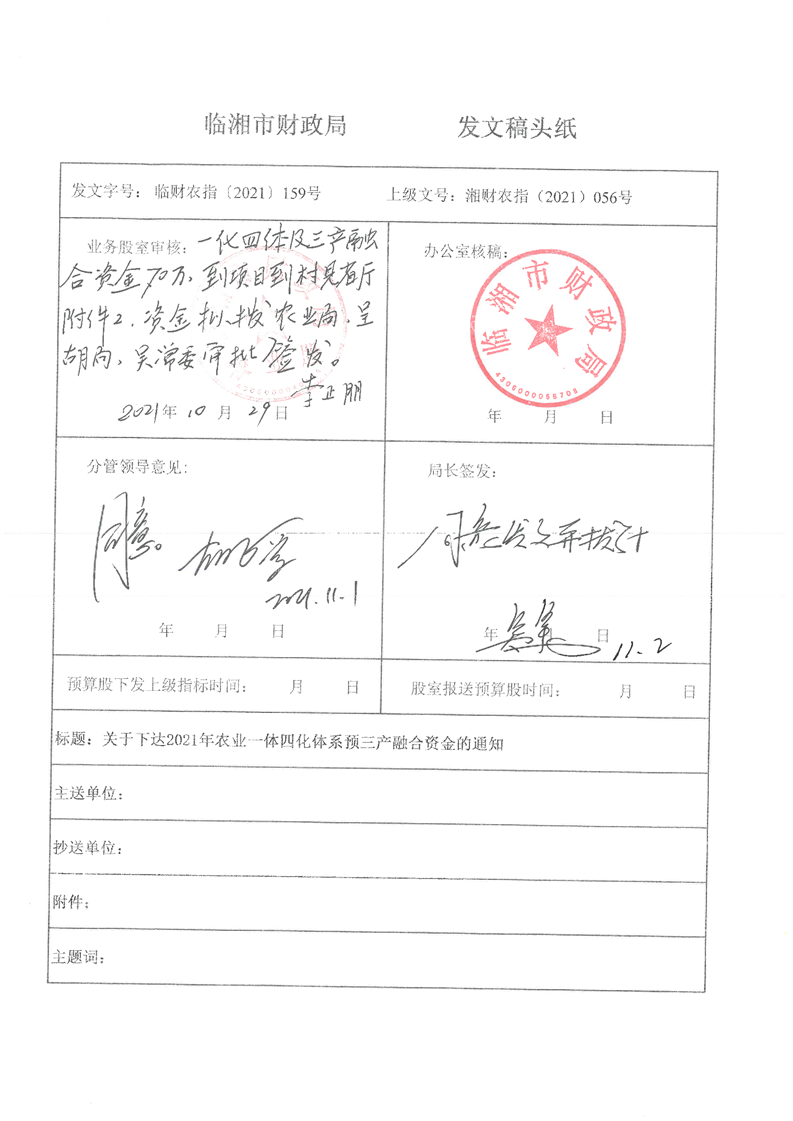 临湘市财政局 发文稿头纸
发文字号：临财农指〔2021〕159号 上级文号：湘财农指（2021）056号
业务股室审核：一化四体及三产融
合资金70万，到项目到村见省厅
附件2，资金拟拨农业局，呈
胡局、吴常委审批签发。
李正朋
2021年10月29日
办公室核稿：
临湘市财政局
4306000066706
年 月 日
分管领导意见：
同意。
2021.11.1
年 月 日
局长签发：
年 月 日
11.2
预算股下发上级指标时间： 月 日
股室报送预算股时间： 月 日
标题：关于下达2021年农业一体四化体系预三产融合资金的通知
主送单位：
抄送单位：
附件：
主题词：